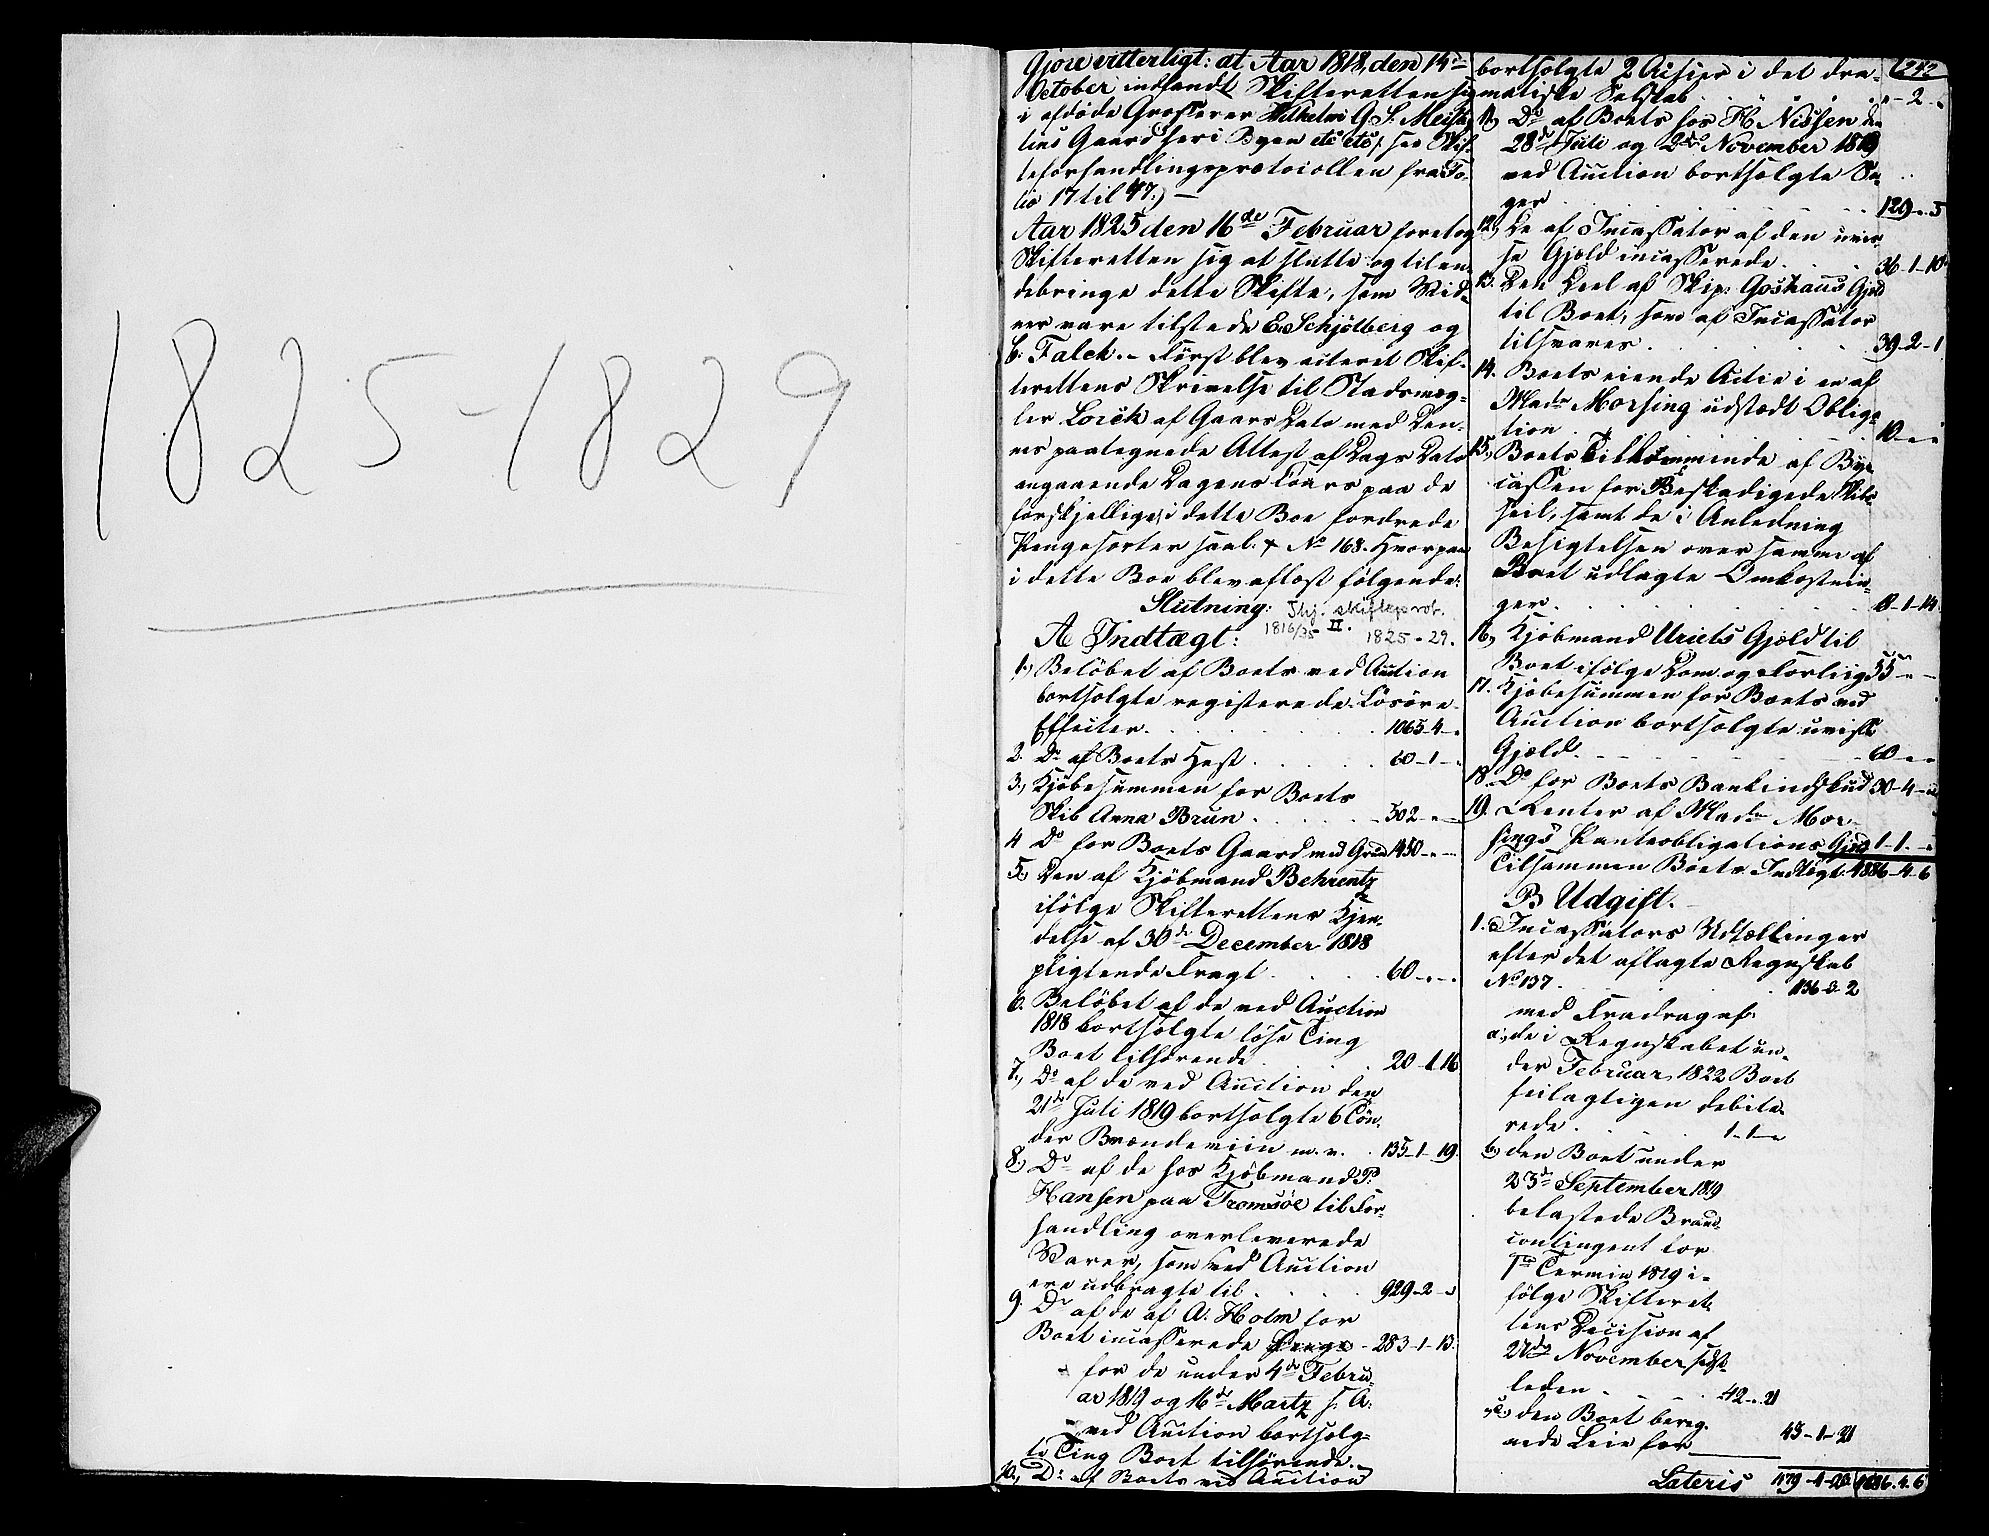 1825-1829
Gjøre vitterligt: at Aar 1818, den 14de
October indfandt Skifteretten sig
i afdøde Grosserer Wilhelm G. S. Meis
tins Gaard heri Byen etc etc /: see Skif-
teforhandlingsprotocollen fra Fo-
lio 17 til 47:/ —
Aar 1825 den 16de Februar foretog
Skifteretten sig at slutte og tilen-
debringe dette Skifte, som Vid-
ner vare tilstede E. Schjölberg og
C. Falck. – Først blev citeret Skif-
terettens Skrivelse til Stadsmæg-
ler Lorck af Gaars Dato med Den-
nes paategnede Attest af Dags Dato
angaaende Dagens Cours paa de
forskjellige, i dette Boe fordrede
Pengesorter saal. + No 168. Hvorpaa
i dette Boe blev aflæst følgende:
Slutning: Thj. skifteprot.
1816/35 II. 1825-29.
A Indtægt:
1.) Beløbet af Boets ved Auction
bortsolgte registerede Løsøre-
Effecter . . . 1065-4-"
2. Do af Boets Hest . . . 60-1-"
3.) Kjøbesummen for Boets
Skib Anna Brun . . . 302-"-"
4 Do for Boets Gaard med Grund 1450-"-"
5.) Den af Kjøbmand Behrentz
ifølge Skifterettens Kjen-
delse af 30de December 1818
pligtende Fragt . . . 60-"-"
6. Beløbet af de ved Auction
1818 bortsolgte løse Ting
Boet tilhørende . . . 20-1.16
7.) Do af de ved Auction den
21de Juli 1819 bortsolgte 6 Tøn-
der Brændeviin m. v. . 135-1-19.
8.) Do af de hos Kjøbmand P.
Hansen paa Tromsöe til For-
handling overleverede
Varer, som ved Auction
ere udbragte til . . . 929-2-"
9. Do af de af A. Holm for
Boet incasserede Penge - 283-1-13.
for de under 4de Febru-
ar 1819 og 16de Martz s. A.
ved Auction bortsolg-
te Ting Boet tilhørende.
10.) Do af Boets ved Auction
242
bortsolgte 2 Actier i det dra-
matiske Selskab . . . "-2-"
11.) Do af Boets hos H. Nissen den
28de Juli og 2den November 1819
ved Auction bortsolgte Sa-
ger . . . 129-"-5
12.) De af Incassator af den uvis-
se Gjæld incasserede . . . 36-1-10
13. Den Deel af Skip: Goshaus Gjæld
til Boet, som af Incassator
tilsvares . . . 39-2-1
14. Boets eiende Actie i en af
Madme Morsing udstædt Obliga-
tion . . . 10-"-"
15.) Boets Tilkommende af Bye-
cassen for Beskadigede Skibs
seil, samt de i Anledning
Besigtelsen over samme af
Boet udlagte Omkostnin-
ger . . . 8-1-14.
16.) Kjøbmand Uriets Gjæld til
Boet ifølge Dom og Forliig 55-"-"
17. Kjøbesummen for Boets ved
Auction bortsolgte uvisse
Gjæld . . . 60-"-"
18. Do for Boets Bankindskud 30-4-"
19. Renter af Madme Mor-
sings Panteobligations Gjæld 1-1-"
Tilsammen Boets Indtægt 4886-4-6
B Udgift.
1. Incassators Udtællinger
efter det aflagte Regnskab
No 137 . . . 136-3-2
med Fradrag af:
a.) de i Regnskabet un-
der Februar 1822 Boet
feilagtigen debite-
rede . . . 1-1-"
b.) den Boet under
23de September 1819
belastede Brand-
contingent for
1ste Termin 1819 i-
følge Skifteret-
tens Decision af
November sidst-
leden . . . 42-"-21
c.) den Boet bereg-
nede Leie for 43-1-21
Lateris 479-4-20 4886.4.6